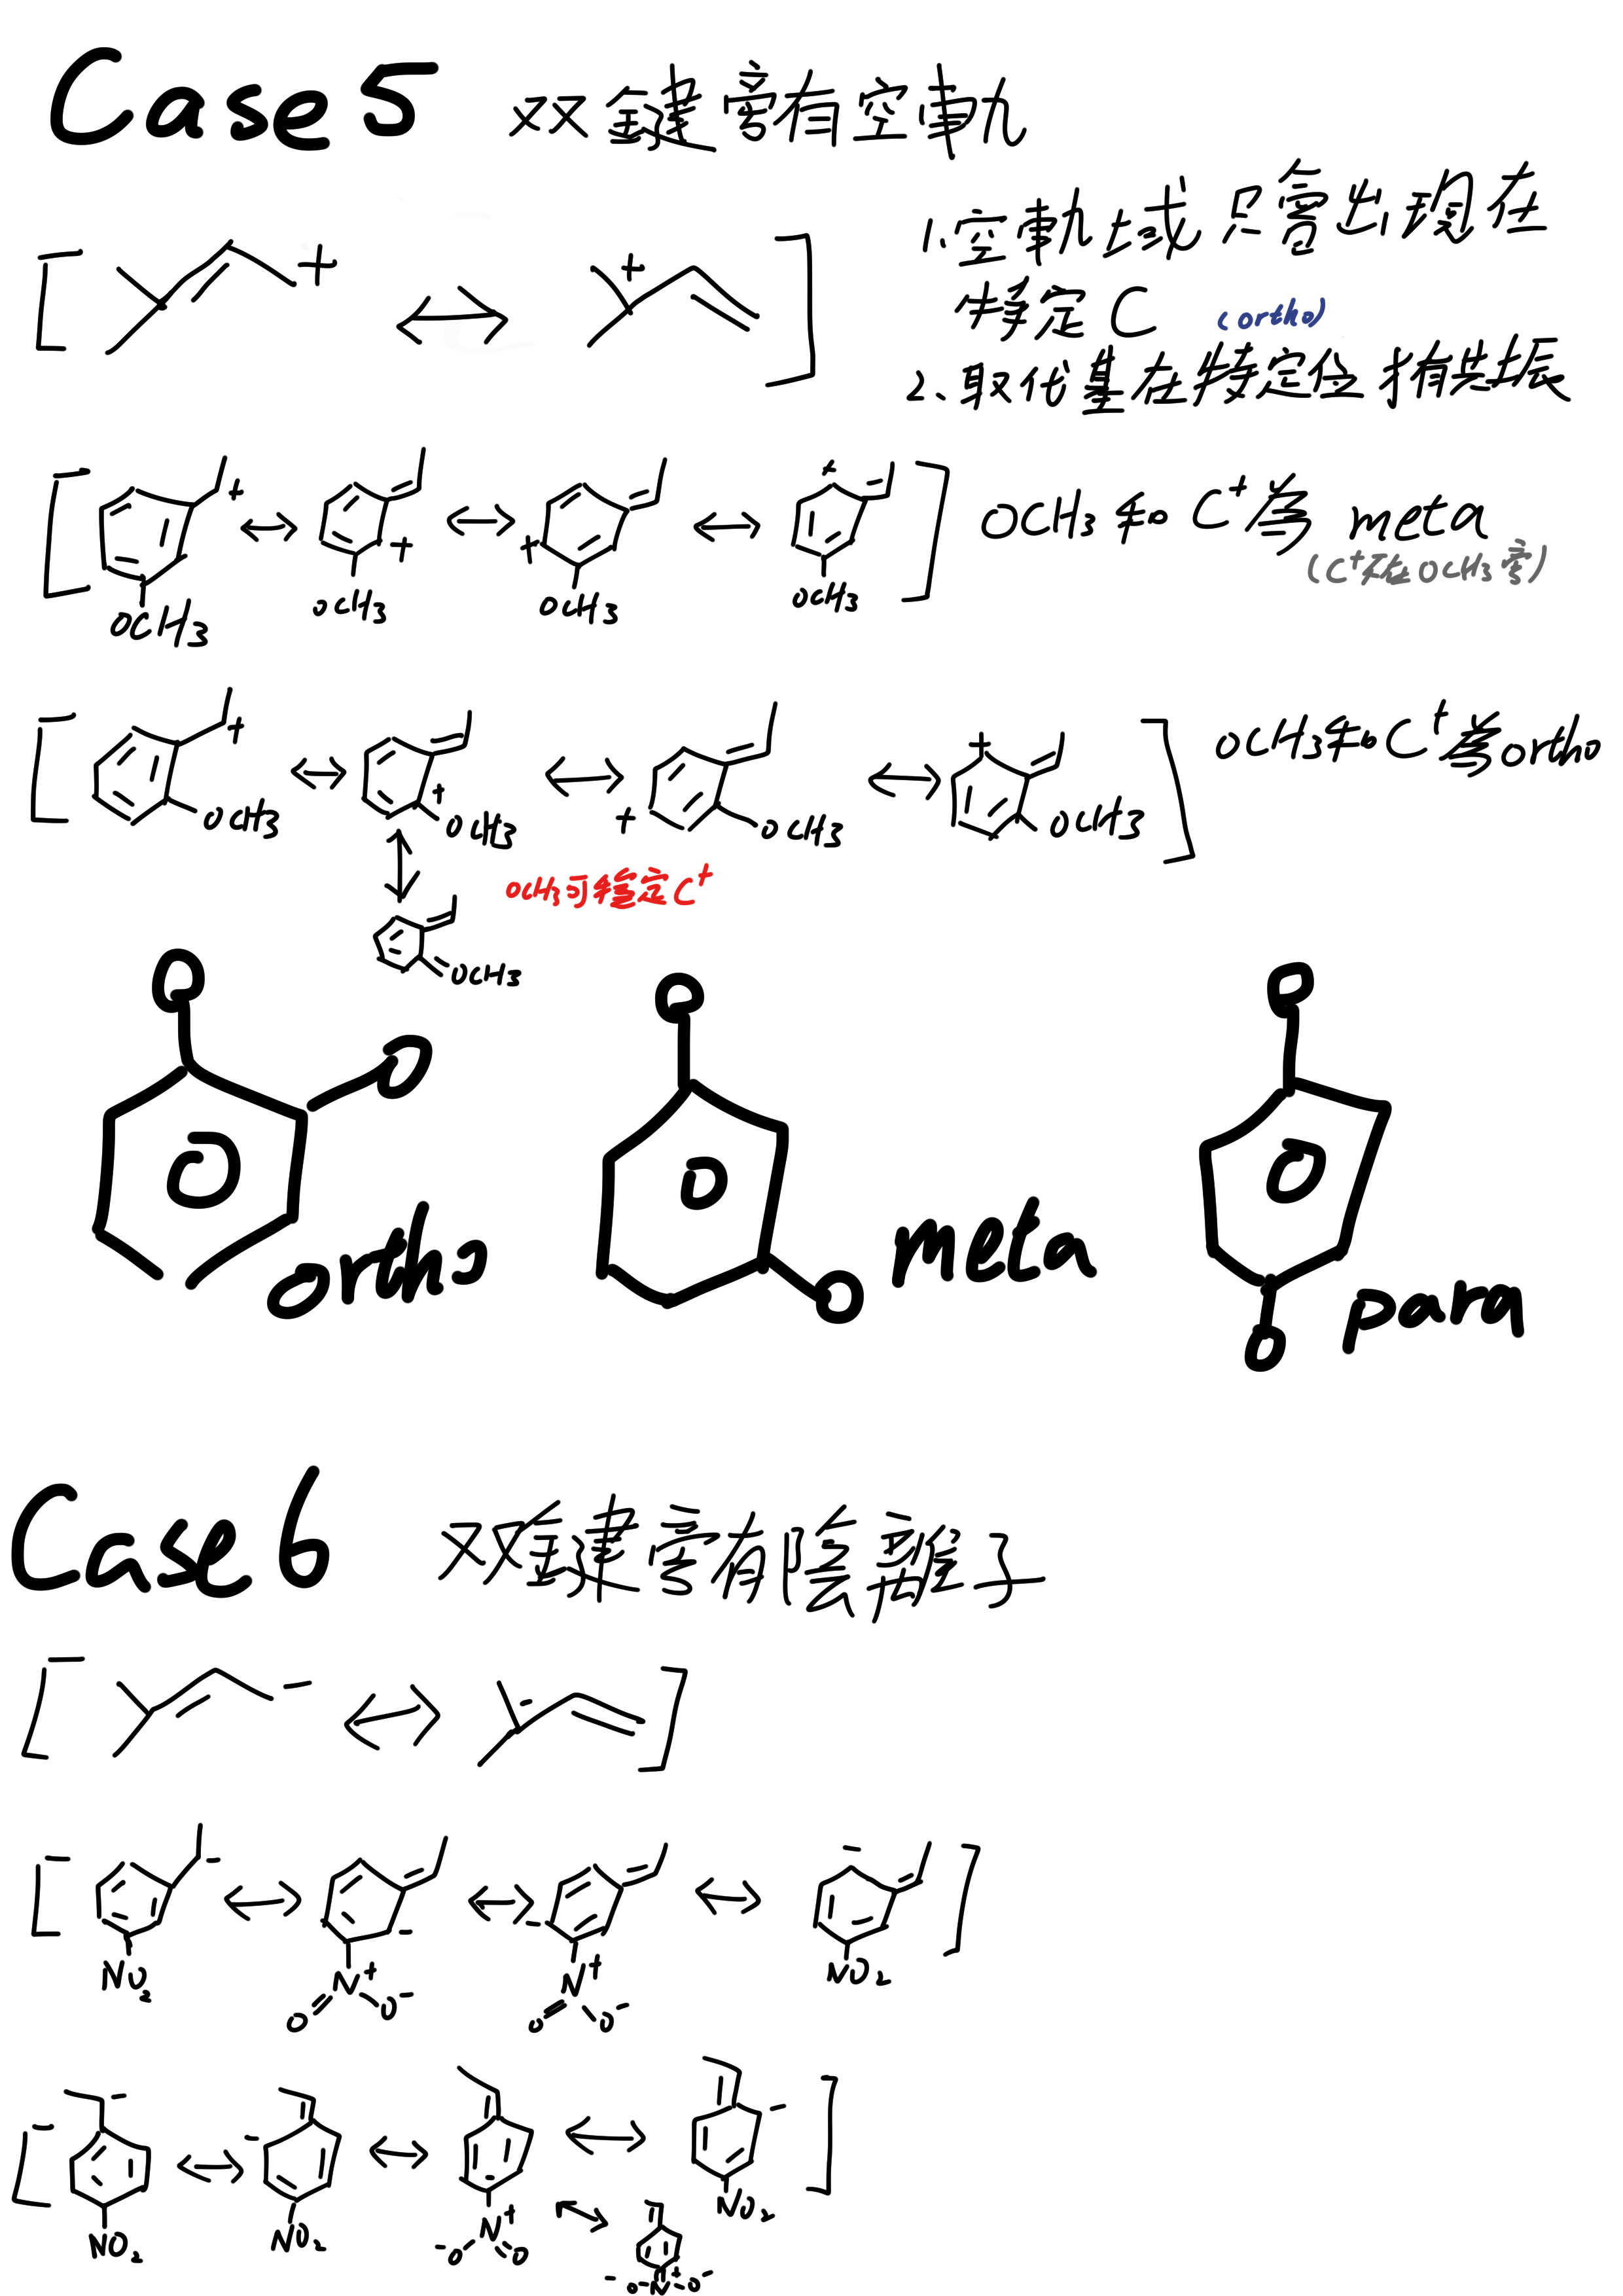 Case 5 双鍵旁有空軌
1. 空軌域只會出現在
特定C (ortho)
2. 取代基在特定位才有共振
+
+
+
+
+
+
OCH3
OCH3
OCH3
OCH3
OCH3和C+為 meta
(C+不在OCH3旁)
+
+
+
+
OCH3
OCH3
OCH3
OCH3
OCH3和C+為ortho
OCH3可穩定C+
OCH3
ortho
meta
para
Case 6 双鍵旁有陰離子
NO2
N+
O
O-
N+
O
O-
NO2
NO2
NO2
N+
-O
O
NO2
-O-N+-O-